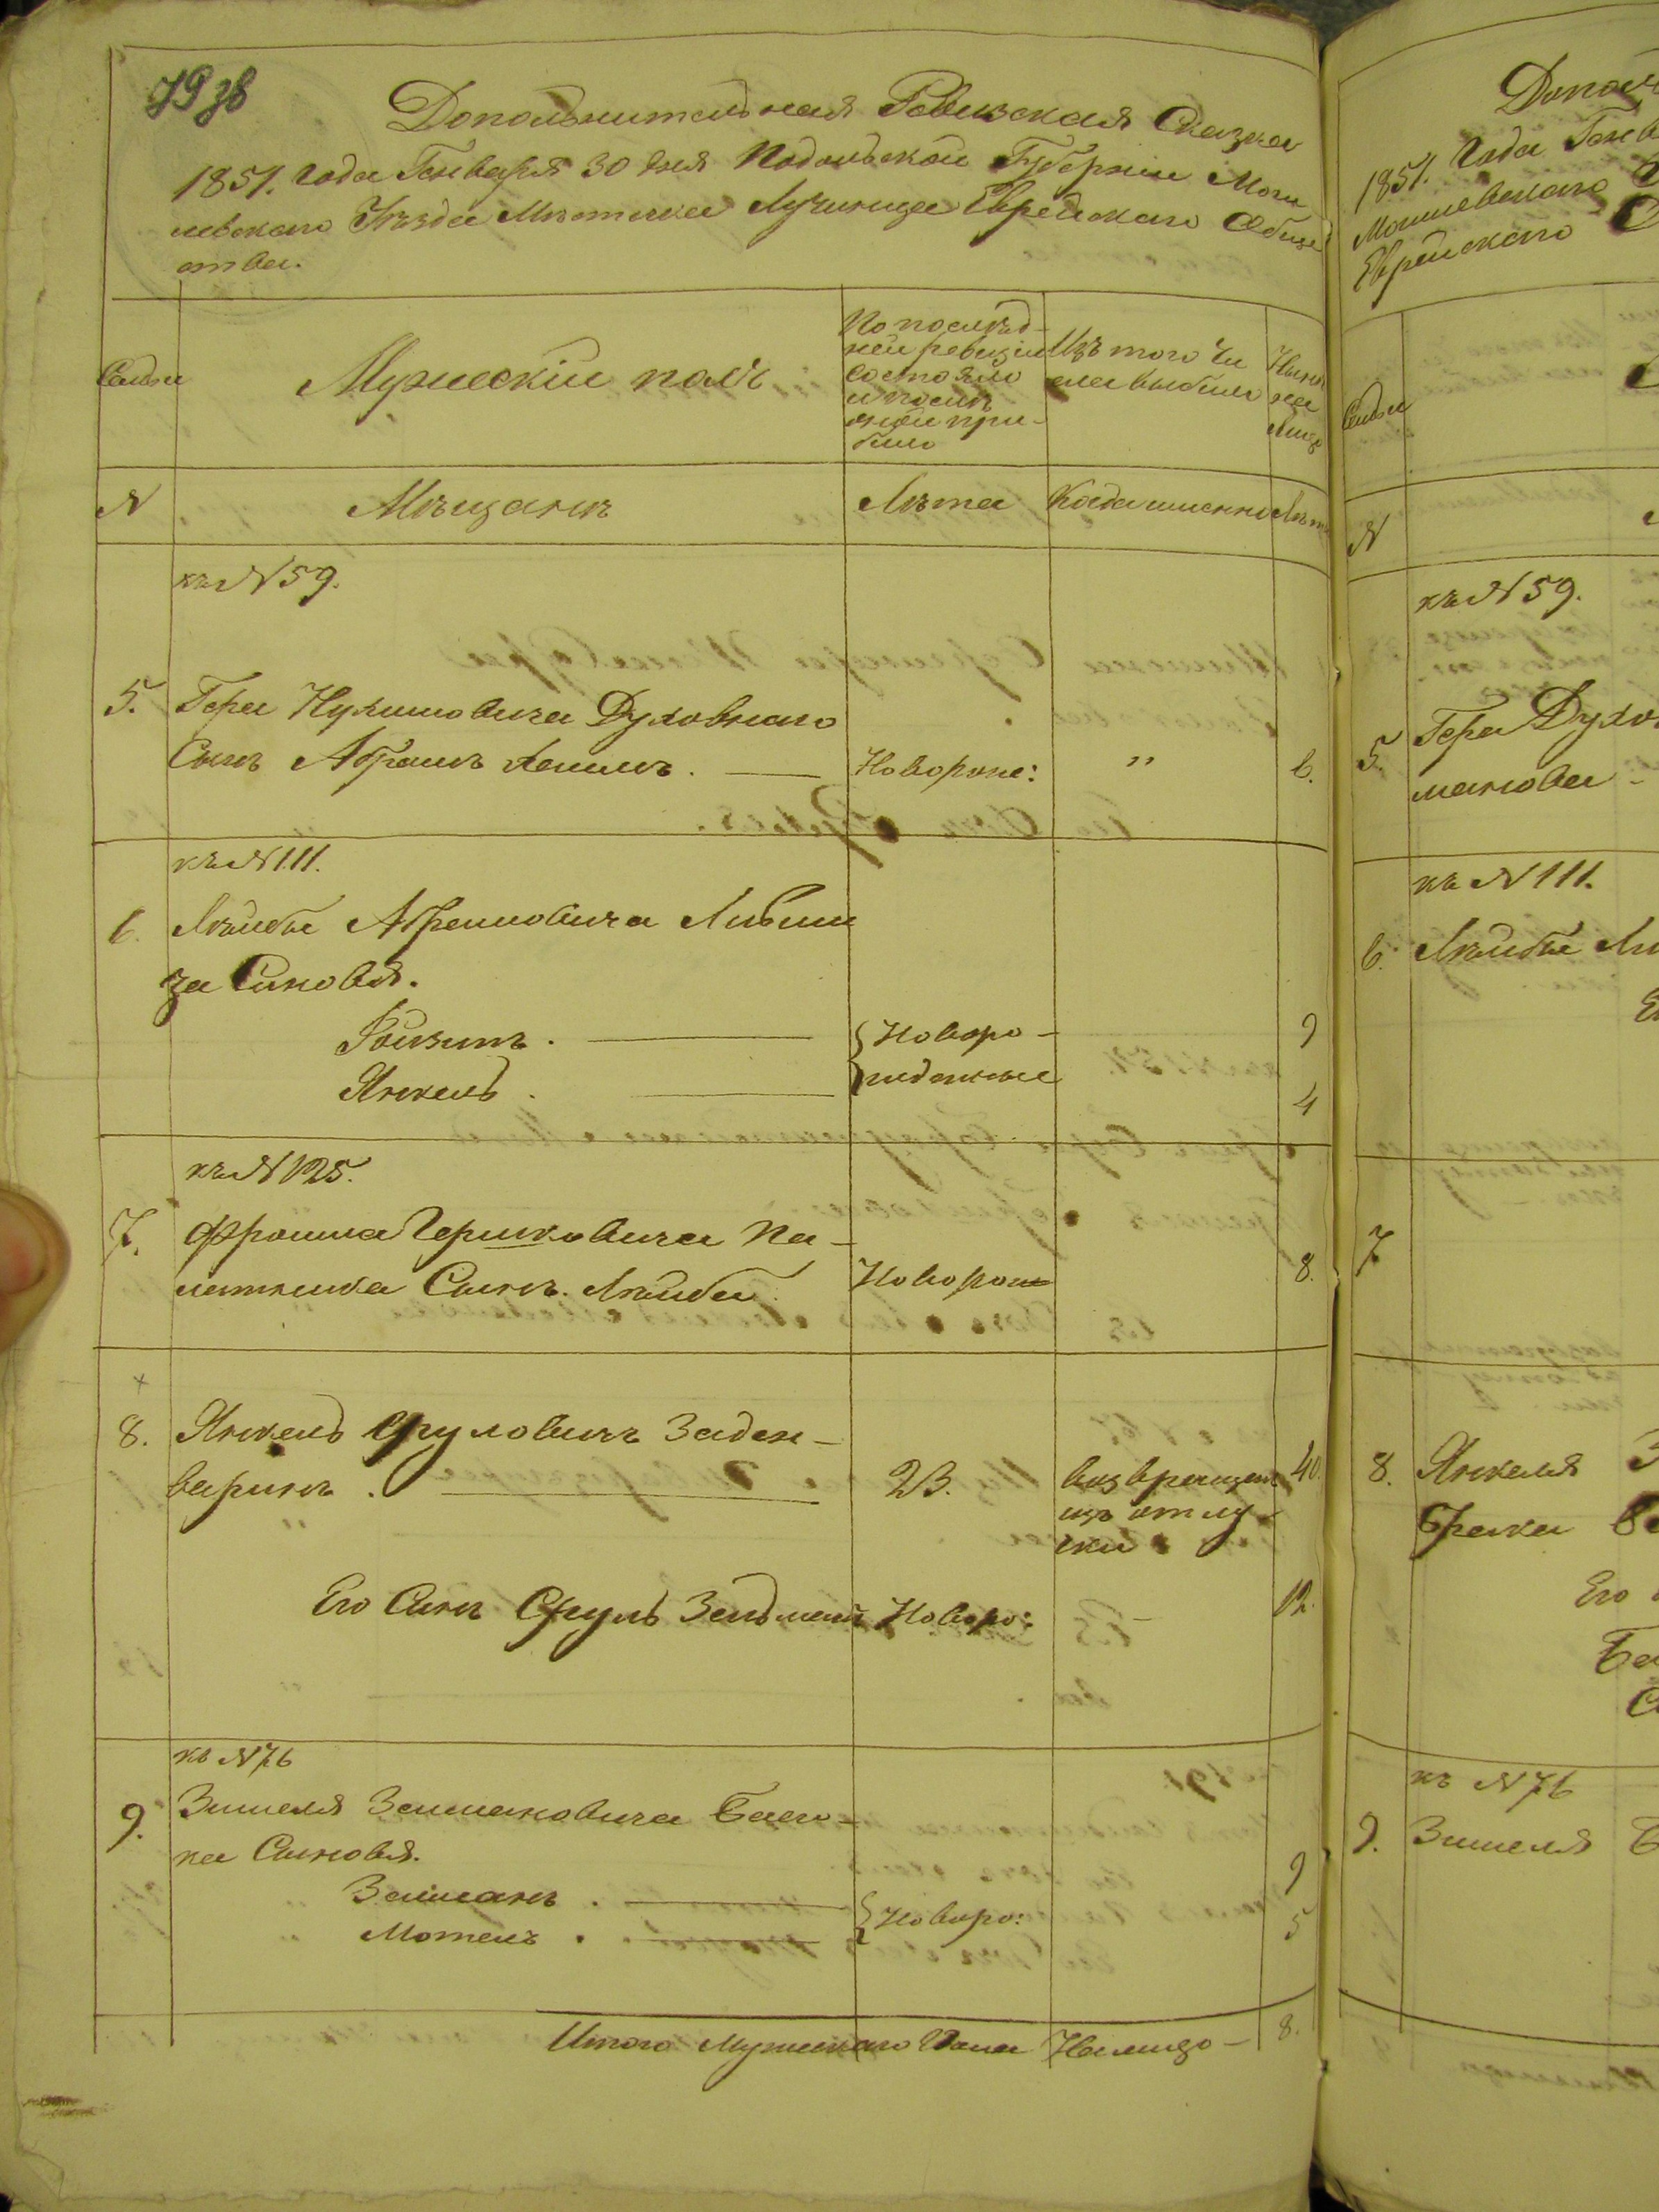 79 зв
Дополнительная Ревизская Сказка
1851. Года Генваря 30 дня Подольской Губернии Моги
левского Уезда Местечка Лучинца Еврейского Обще
ства.
Семьи
Мужеский полъ
По послед-
ней ревизии
состояло
и после
оной при-
было
Изъ того чи
сла выбыло
Ныне
на
лице
N
Мещане
Лета
Когда именно
Лета
къ N 59.
5. Гера Нухимовича Духовного
Сынъ Абрамъ . — Новорож: " 6.
къ N 111.
6. Лейбы Абрамовича Либши
за Сыновья.
. — Новоро- 9
Янкель . — жденные 4
къ N 125.
7. Фроима Гершковича Па-
Сынъ. Лейба. Новорож 8.
8. Янкель Сруловичъ Заден-
варинъ . — 23. возвращен 40.
изъ отлу-
чки
Его Сынъ Сруль Зельман Новоро: — 12.
къ N 76
9. Зишеля Зейликовича
на Сыновья.
. — Новоро: 9
Мотель . — 5
Итого Мужеского Пола Налицо — 8.
1851. Года Генв
Могилевского
Еврейского
Семьи
N
къ N 59.
5. Гера Духов
къ N 111.
6. Лейбы Ли
7
8. Янкеля З
Его
къ N 76
9. Зишеля Б